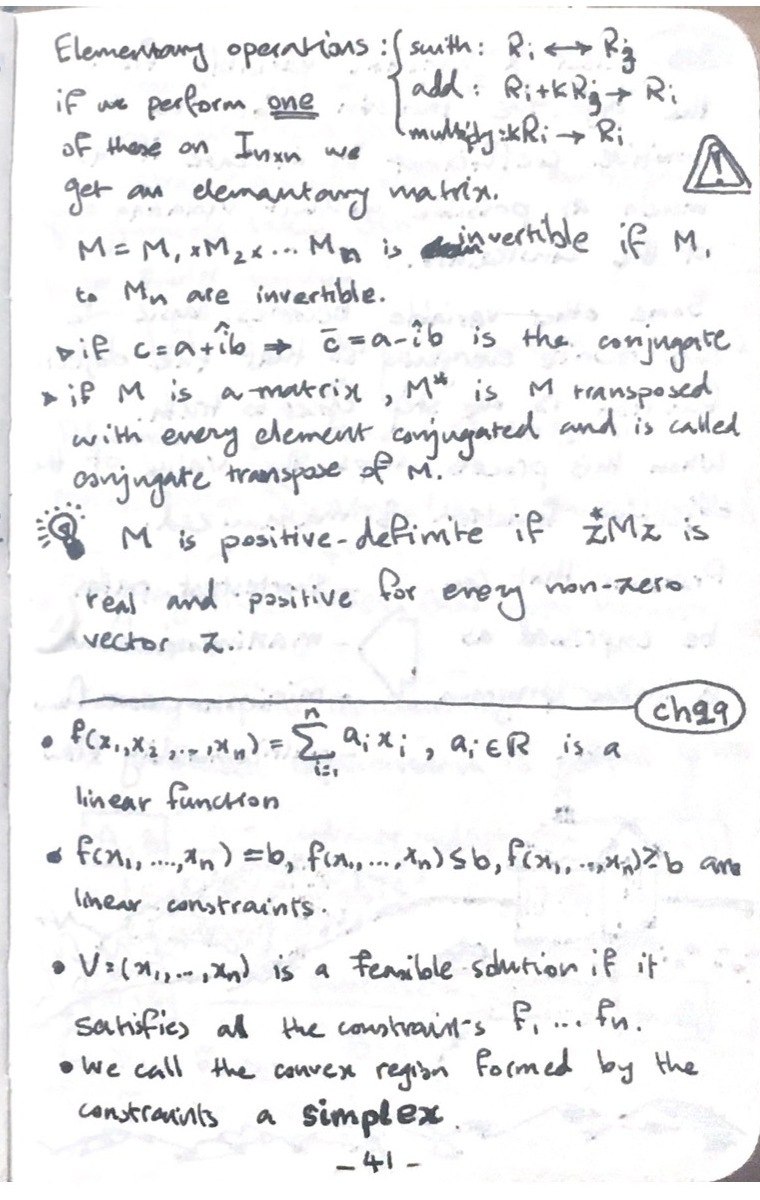 Elementary operations : { swith: Ri ↔ Rj
if we perform one add: Ri+kRj → Ri
of these on Inxn we multiply: kRi → Ri
get an elemantary matrix.
M = M1 x M2 x ... Mn is invertible if M1
to Mn are invertible.
▹ if c = a+îb ⇒ c̄ = a-îb is the conjugate
▹ if M is a matrix, M* is M transposed
with every element conjugated and is called
conjugate transpose of M.
M is positive-definite if z*Mz is
real and positive for every non-zero
vector z.
ch29
• f(x1,x2,...,xn) = Σ(i=1 to n) ai xi , ai ∈ R is a
linear function
• f(x1,...,xn) = b, f(x1,...,xn) ≤ b, f(x1,...,xn) ≥ b are
linear constraints.
• V = (x1,...,xn) is a feasible solution if it
satisfies all the constraints f1 ... fn.
• We call the convex region formed by the
constraints a simplex.
- 41 -